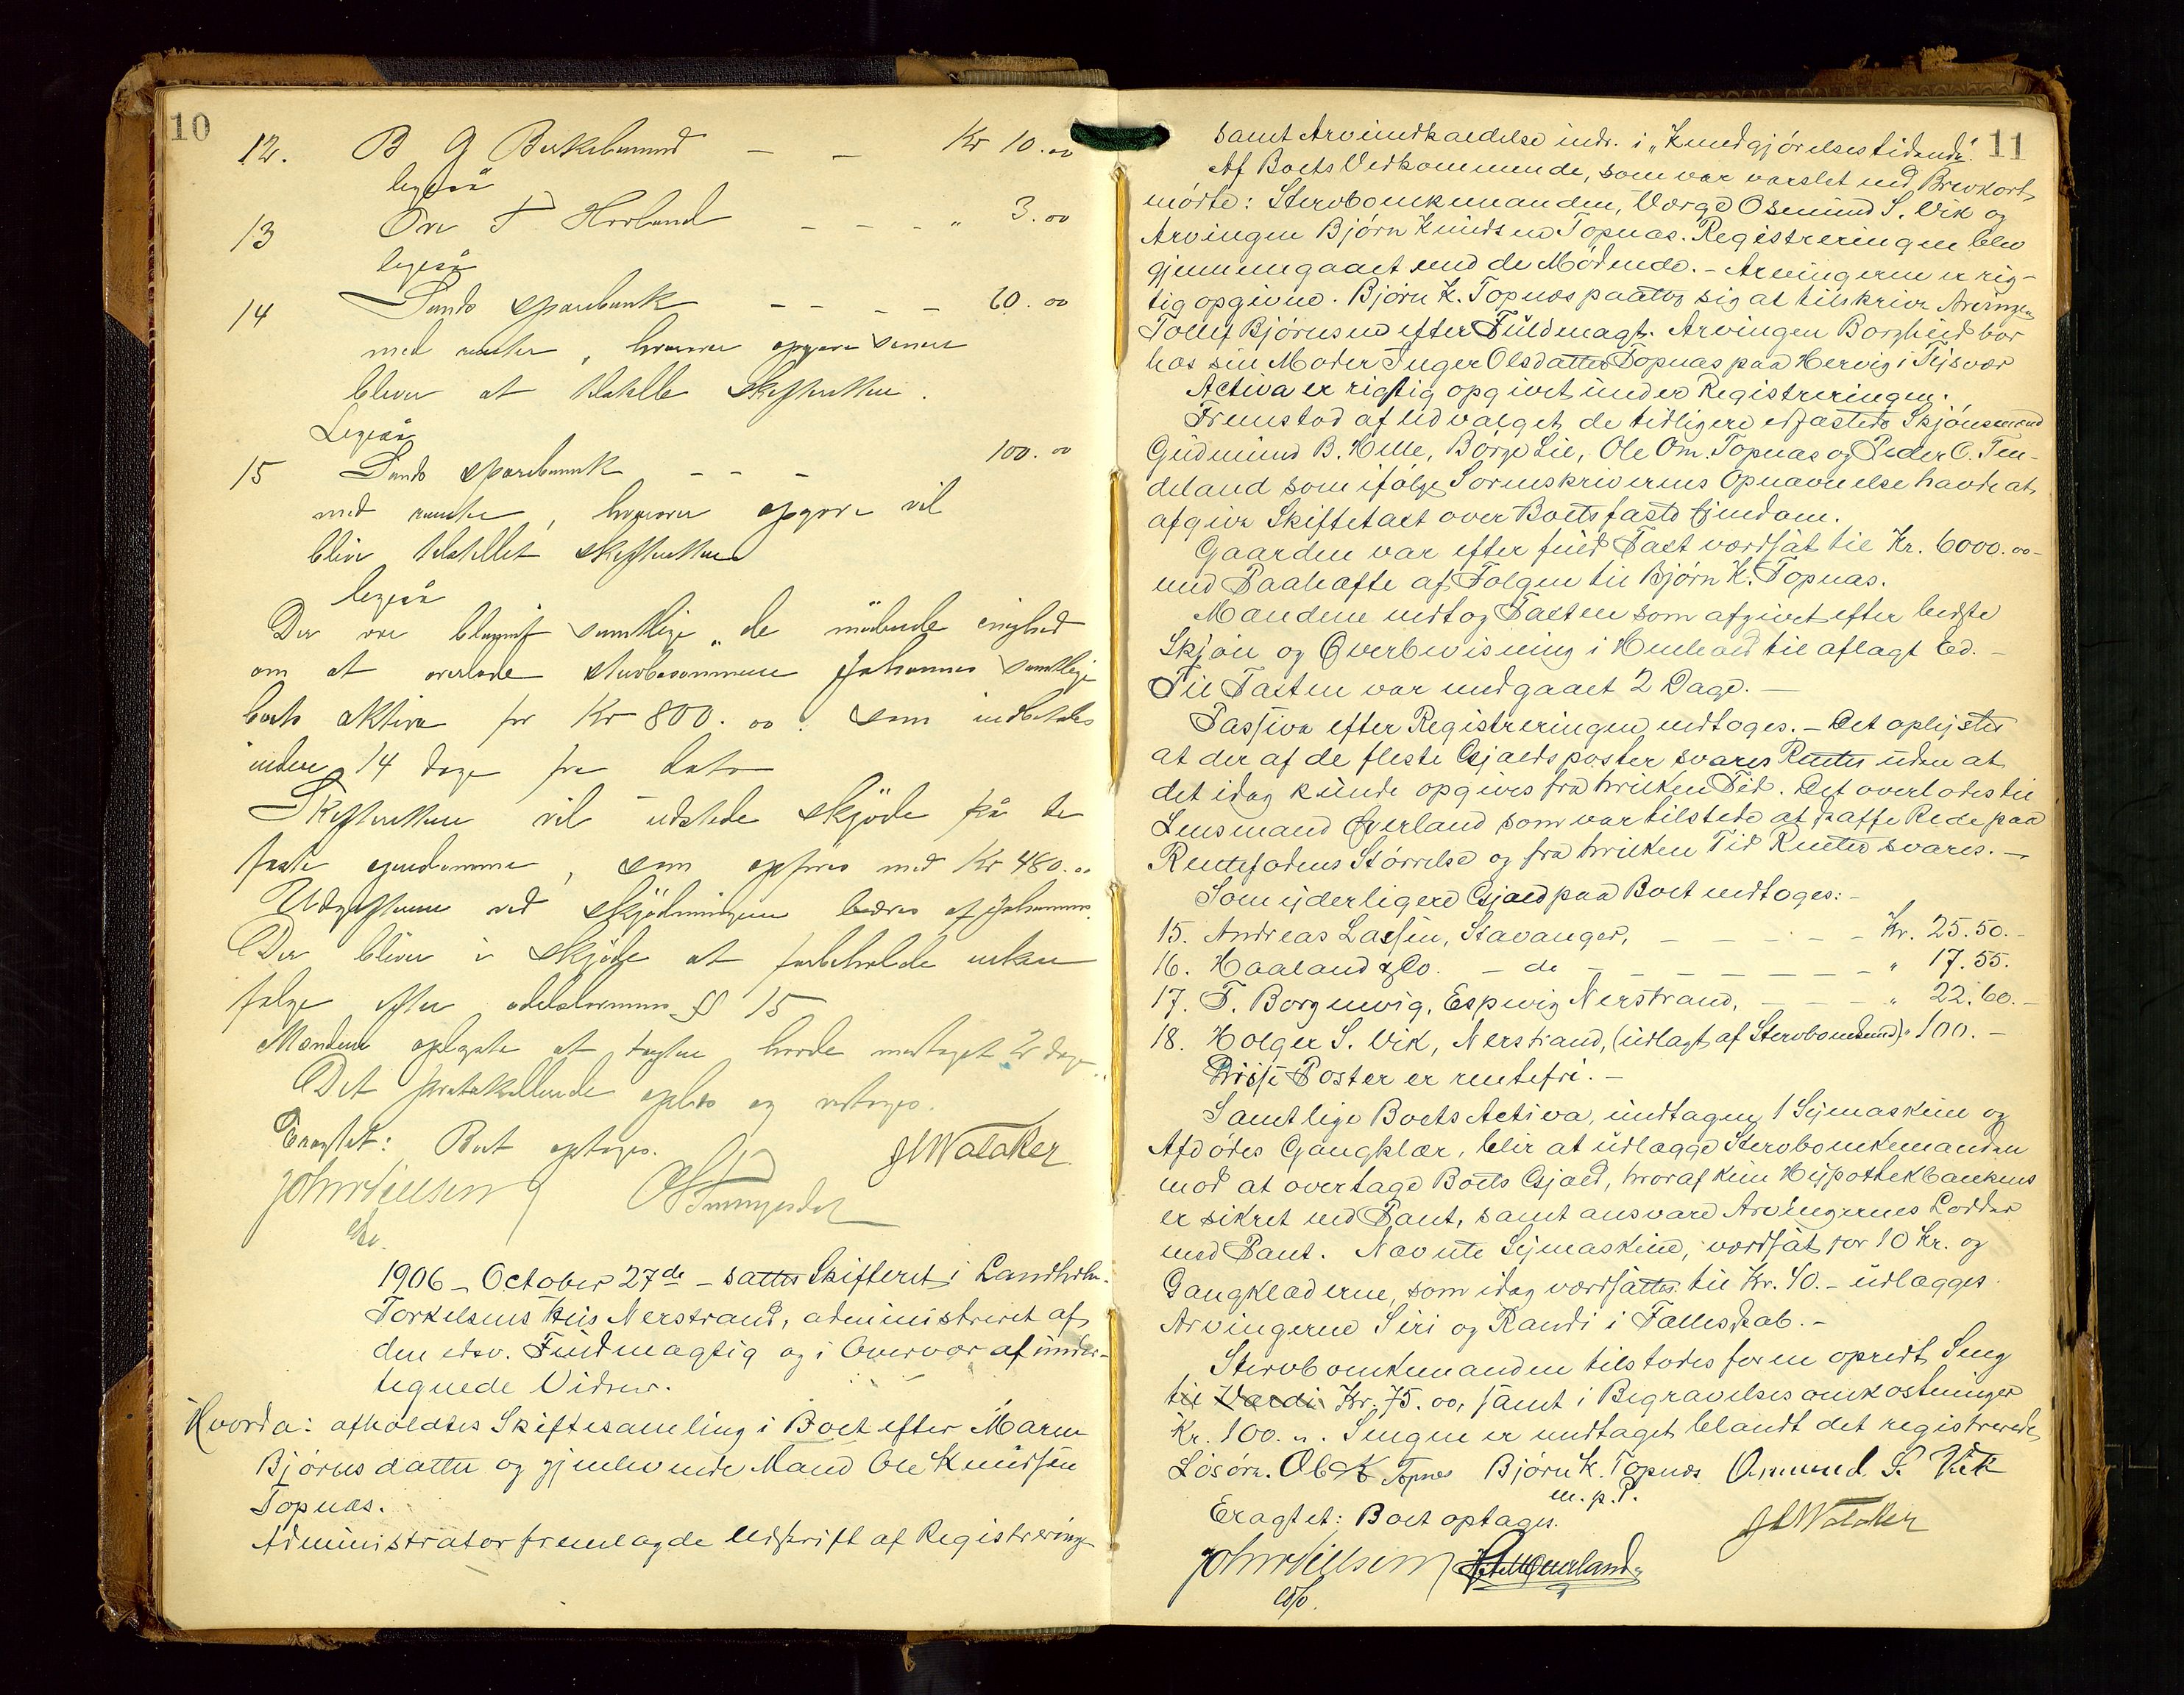 10
12. B G Birkelund — — Kr 10.00
ligeså
13 Ore T Hovland — — — " 3.00
ligeså
14 Sands sparebank — — — — 60.00
med renter, hvorover opgave senere
bliver at tilstille skifteretten.
Ligeså
15 Sands sparebank — — — 100.00
med renter, hvorover opgave vil
blive tilstillet skifteretten
ligeså
Der var blandt samtlige de mødende enighed
om at overlade stervbosønnen Johannes samtlige
boets aktiva for Kr 800.00. som indbetales
inden 14 dage fra dato
Skifteretten vil udstede skjøde på de
faste ejendomme, som opføres med Kr 480.00
Udgifterne ved skjødningen bæres af Johannes.
Der bliver i skjøde at forbeholde enken
følge efter odelslovens § 15
Mændene oplyste at taxten havde medtaget 2 dage.
Det protokollerede oplæst og vedtages.
Eragtet: Boet optages. JLWalaker
John Nielsen
Edsv.
1906 – October 27de – sattes Skifteret i Landhdlr.
Torkelsens Hus Nerstrand, administreret af
den edsv. Fuldmægtig og i Overvær af under-
tegnede Vidner.
Hvorda: afholdtes Skiftesamling i Boet efter Maren
Bjørnsdatter og gjenlevende Mand Ole Knudsen
Topnæs.
Administrator fremlagde Udskrift af Registrering
11
samt Arveindkaldelse indr. i "Kundgjørelsestidende".
Af Boets Vedkommende, som var varslet ved Brevkort
mødte: Stervboenkemanden, Værge Osmund S. Vik og
Arvingen Bjørn Knudsen Topnæs. Registreringen blev
gjennemgaaet med de Mødende. – Arvingerne er rig-
tig opgivne. Bjørn K. Topnæs paatog sig at tilskrive Arvingen
Tollef Bjørnsen efter Fuldmagt. Arvingen Borghild bor
hos sin Moder Inger Olsdatter Topnæs paa Hervig i Tysvær
Activa er rigtig opgivet under Registreringen.
Fremstod af Udvalget de tidligere edfæstede Skjønsmænd
Gudmund B. Helle, Børge Lie, Ole Om. Topnæs og Peder O. Ten-
deland som ifølge Sorenskriverens Opnævnelse havde at
afgive Skiftetaxt over Boets faste Ejendom.
Gaarden var efter fuld Taxt værdsat til Kr. 6000.00–
med Paahefte af Følgen til Bjørn K. Topnæs.
Mændene vedtog Taxten som afgivet efter bedste
Skjøn og Overbevisning i Henhold til aflagt Ed. –
Til Taxten var medgaaet 2 Dage. —
Passiva efter Registreringen vedtoges. – Det oplystes
at der af de fleste Gjældsposter svares Renter uden at
det idag kunde opgives fra hvilken Tid. Det overlodes til
Lensmand Øverland som var tilstede at skaffe Rede paa
Rentefodens Størrelse og fra hvilken Tid Renter svares. –
Som yderligere Gjæld paa Boet vedtoges: –
15. Andreas Lassen, Stavanger, — — — — Kr. 25.50.–
16. Haaland & Co. – do – — — — — — — " 17.55.
17. T. Borgenvig, Espevig Nerstrand, — — — " 22.60.–
18. Holger S. Vik, Nerstrand, (udlagt af Stervboenkemd) " 100. –
Disse Poster er rentefri. –
Samtlige Boets Activa, undtagen 1 Symaskine og
Afdødes Gangklær, blir at udlægge Stervboenkemanden
mod at overtage Boets Gjæld, hvoraf kun Hypothekbankens
er sikret ved Pant, samt ansvare Arvingernes Lodder
med Pant. Nævnte Symaskine, værdsat for 10 Kr. og
Gangklæderne, som idag værdsattes til Kr. 40.– udlægges
Arvingerne Siri og Randi i Fællesskab. –
Stervboenkemanden tilstodes for en opredt Seng
til Værdi Kr. 75.00, samt i Begravelsesomkostninger
Kr. 100. ". Sengen er undtaget blandt det registrerede
Løsøre. Ole K Topnes Bjørn K. Topnæs Osmund S. Vik
m. p. P.
Eragtet: Boet optages. JLWalaker
John Nielsen Øverland
edsv.